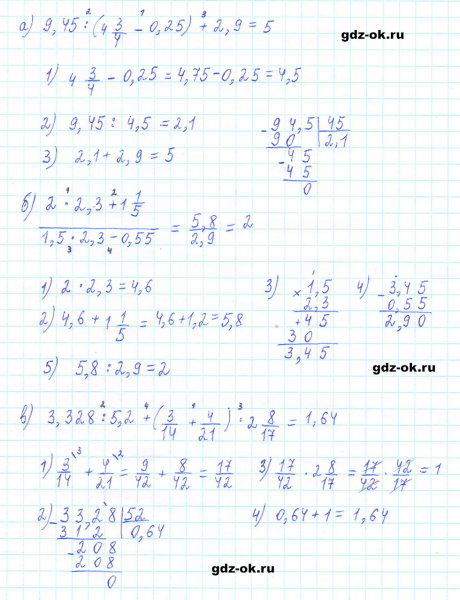 а) 9,45 : (4 3/4 - 0,25) + 2,9 = 5
gdz-ok.ru
1) 4 3/4 - 0,25 = 4,75 - 0,25 = 4,5
2) 9,45 : 4,5 = 2,1
3) 2,1 + 2,9 = 5
94,5 | 45
90 | 2,1
45
45
0
б) (2 · 2,3 + 1 1/5) / (1,5 · 2,3 - 0,55) = 5,8/2,9 = 2
1) 2 · 2,3 = 4,6
2) 4,6 + 1 1/5 = 4,6 + 1,2 = 5,8
5) 5,8 : 2,9 = 2
3) × 1,5
2,3
+ 45
30
3,45
4) - 3,45
0,55
2,90
gdz-ok.ru
в) 3,328 : 5,2 + (3/14 + 4/21) · 2 8/17 = 1,64
1) 3/14 + 4/21 = 9/42 + 8/42 = 17/42
3) 17/42 · 2 8/17 = 17/42 · 42/17 = 1
2) - 33,28 | 52
31 2 | 0,64
- 208
208
0
4) 0,64 + 1 = 1,64
gdz-ok.ru